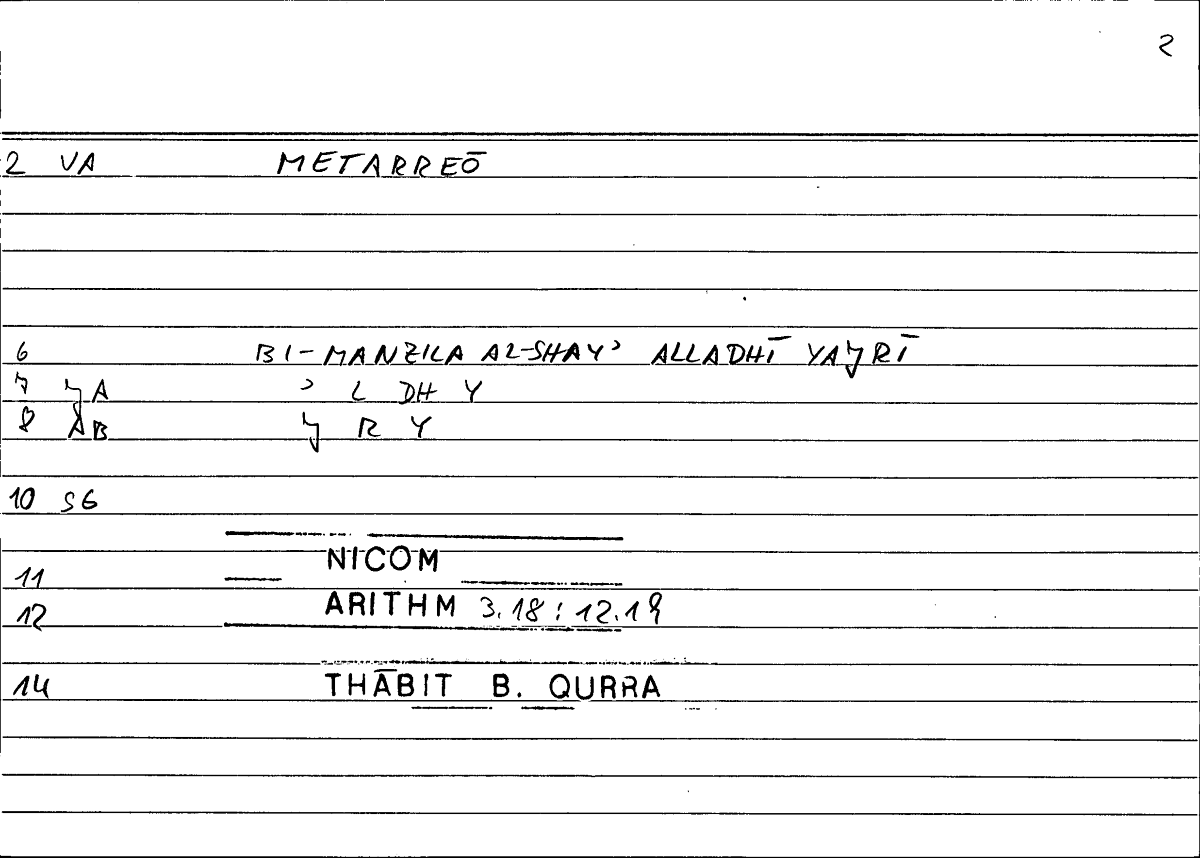 2
2 VA METARREŌ
6 BI-MANZILA AL-SHAYʾ ALLADHĪ YAJRĪ
7 JA ʾ L DH Y
8 AB J R Y
10 SG
11 NICOM
12 ARITHM 3.18 : 12.19
14 THĀBIT B. QURRA